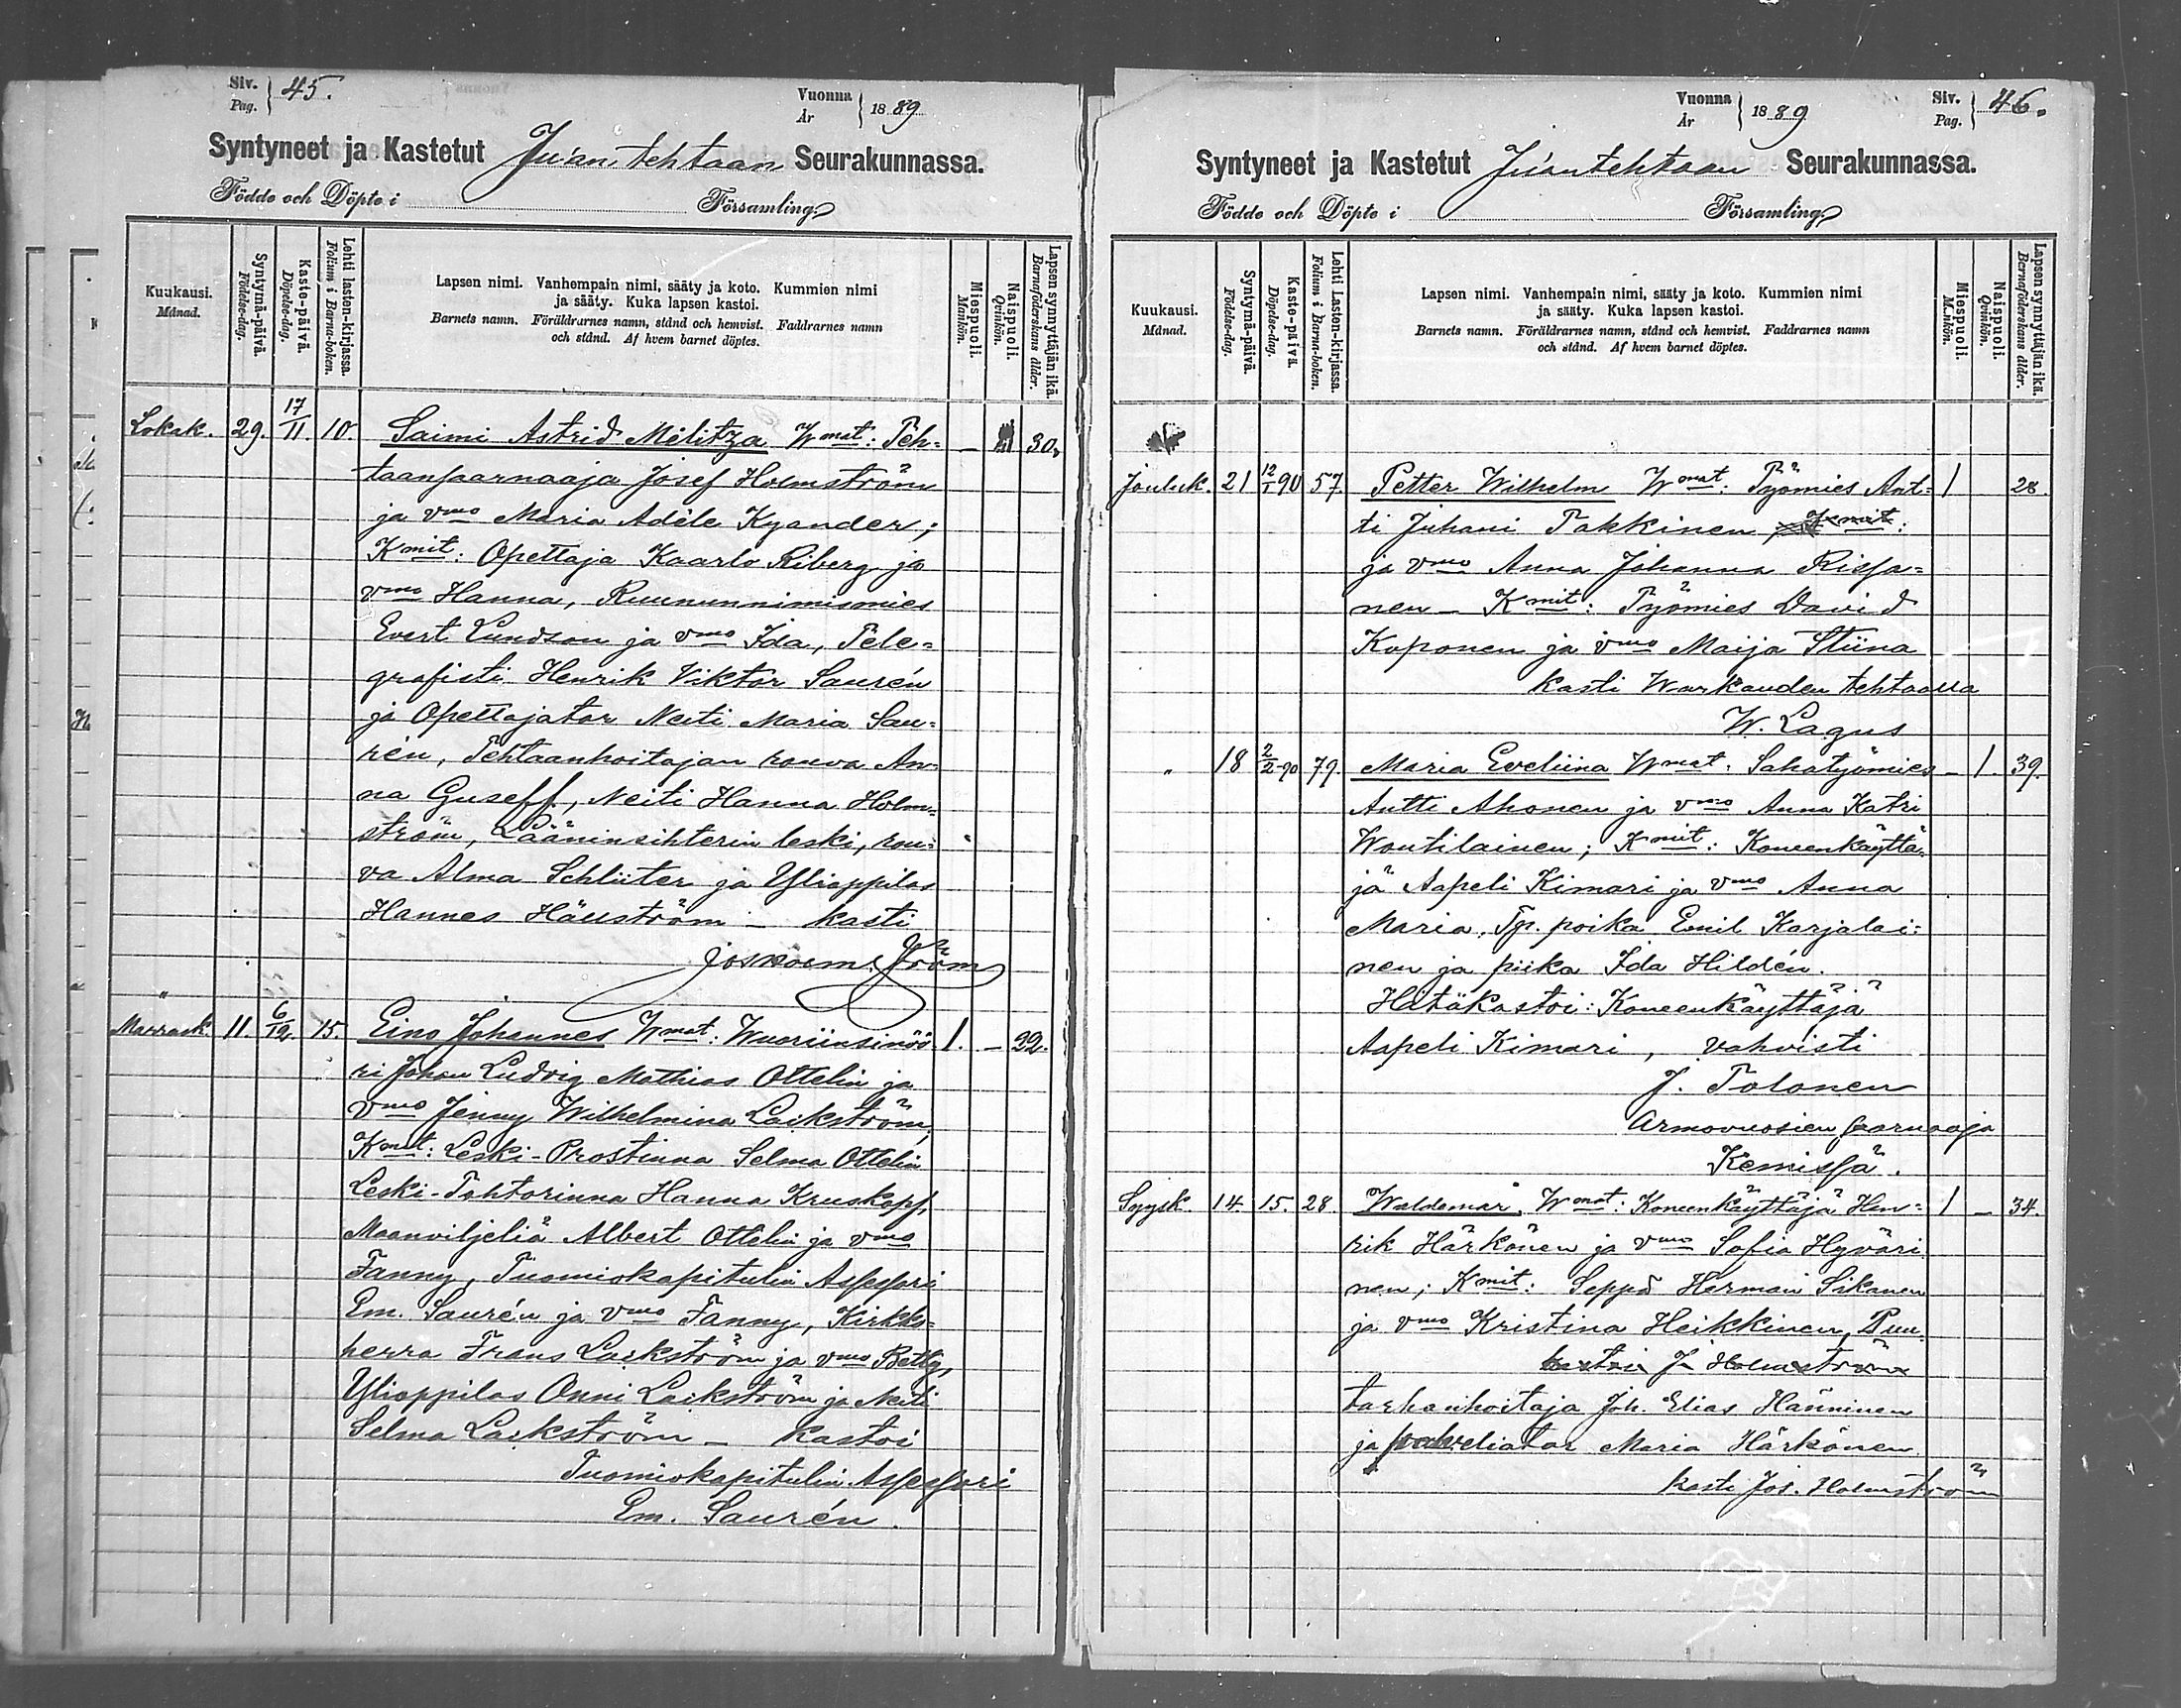 Siv. Pag. } 45. Vuonna År } 1889
Syntyneet ja Kastetut Juantehtaan Seurakunnassa.
Födde och Döpte i Församling
Kuukausi. Månad.
Syntymä-päivä. Födelse-dag.
Kaste-päivä. Döpelse-dag.
Lehti lasten-kirjassa. Folium i Barna-boken.
Lapsen nimi. Vanhempain nimi, sääty ja koto. Kummien nimi
ja sääty. Kuka lapsen kastoi.
Barnets namn. Föräldrarnes namn, stånd och hemvist. Faddrarnes namn
och stånd. Af hvem barnet döptes.
Miespuoli. Mankön.
Naispuoli. Qvinkön.
Lapsen synnyttäjän ikä. Barnaföderskans ålder.
Lokak. 29. 17/11 10. Saimi Astrid Mélitza Wmat: Teh=
taansaarnaaja Josef Holmström
ja vmo Maria Adéle Kyander;
Kmit: Opettaja Kaarlo Riberg ja
vmo Hanna, Ruununnimismies
Evert Lundson ja vmo Ida, Tele=
grafisti Henrik Viktor Saurén
ja Opettajatar Neiti Maria Sau=
rén, Tehtaanhoitajan rouva An=
na Guseff, Neiti Hanna Holm=
ström, Lääninsihterin leski, rou=
va Alma Schlüter ja Ylioppilas
Hannes Hällström – kasti
Jos Holmström
– 30.
Marrask. 11. 6/12 15. Eino Johannes Wmat: Wuoriinsinöö= 1. – 22.
ri Johan Ludvig Mathias Ottelin ja
vmo Jenny Wilhelmina Lackström,
Kmit: Leski-Prostinna Selma Ottelin
Leski-Tohtorinna Hanna Kruskopf,
Maanviljeliä Albert Ottelin ja vmo
Fanny, Tuomiokapitulin Assessori
Em. Saurén ja vmo Fanny, Kirkko=
herra Frans Lackström ja vmo Betty,
Ylioppilas Onni Lackström ja Neiti
Selma Lackström – kastoi
Tuomiokapitulin Assessori
Em. Saurén.
Vuonna År } 1889 Siv. Pag. } 46.
Syntyneet ja Kastetut Juantehtaan Seurakunnassa.
Födde och Döpte i Församling
Kuukausi. Månad.
Syntymä-päivä. Födelse-dag.
Kaste-päivä. Döpelse-dag.
Lehti Lasten-kirjassa. Folium i Barna-boken.
Lapsen nimi. Vanhempain nimi, sääty ja koto. Kummien nimi
ja sääty. Kuka lapsen kastoi.
Barnets namn. Föräldrarnes namn, stånd och hemvist. Faddrarnes namn
och stånd. Af hvem barnet döptes.
Miespuoli. Mankön.
Naispuoli. Qvinkön.
Lapsen synnyttäjän ikä. Barnaföderskans ålder.
Jouluk. 21 12/1 90 57. Petter Wilhelm Wmat: Työmies Ant= 1 28.
ti Juhani Takkinen Kmit:
ja vmo Anna Johanna Rissa=
nen – Kmit: Työmies David
Koponen ja vmo Maija Stiina
kasti Warkauden tehtaalla
W. Lagus
" 18 2/2 90 79. Maria Eveliina Wmat: Sahatyömies – 1. 39.
Antti Ahonen ja vmo Anna Katri
Woutilainen; Kmit: Koneenkäyttä=
jä Aapeli Kimari ja vmo Anna
Maria. Tp. poika Emil Karjalai=
nen ja piika Ida Hildén.
Hätäkastoi: Koneenkäyttäjä
Aapeli Kimari, vahvisti
J. Tolonen
Armovuosien saarnaaja
Kemissä.
Syysk. 14. 15. 28. Waldemar. Wmat: Koneenkäyttäjä Hen= 1 – 34.
rik Härkönen ja vmo Sofia Hyväri
nen; Kmit: Seppä Herman Sikanen
ja vmo Kristina Heikkinen, Puu
kastoi J Holmström
tarhanhoitaja Joh. Elias Hänninen
ja palveliatar Maria Härkönen.
kasti Jos. Holmström